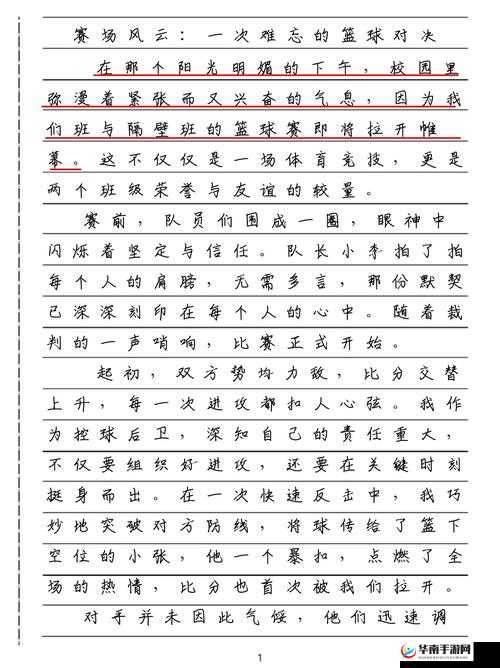 赛场风云：一次难忘的篮球对决
在那个阳光明媚的下午，校园里
弥漫着紧张而又兴奋的气息，因为我
们班与隔壁班的篮球赛即将拉开帷
幕。这不仅仅是一场体育竞技，更是
两个班级荣誉与友谊的较量。
赛前，队员们围成一圈，眼神中
闪烁着坚定与信任。队长小李拍了拍
每个人的肩膀，无需多言，那份默契
已深深刻印在每个人的心中。随着裁
判的一声哨响，比赛正式开始。
起初，双方势均力敌，比分交替
上升，每一次进攻都扣人心弦。我作
为控球后卫，深知自己的责任重大，
不仅要组织好进攻，还要在关键时刻
挺身而出。在一次快速反击中，我巧
妙地突破对方防线，将球传给了篮下
空位的小张，他一个暴扣，点燃了全
场的热情，比分也首次被我们拉开。
对手并未因此气馁，他们迅速调
1
华南手游网